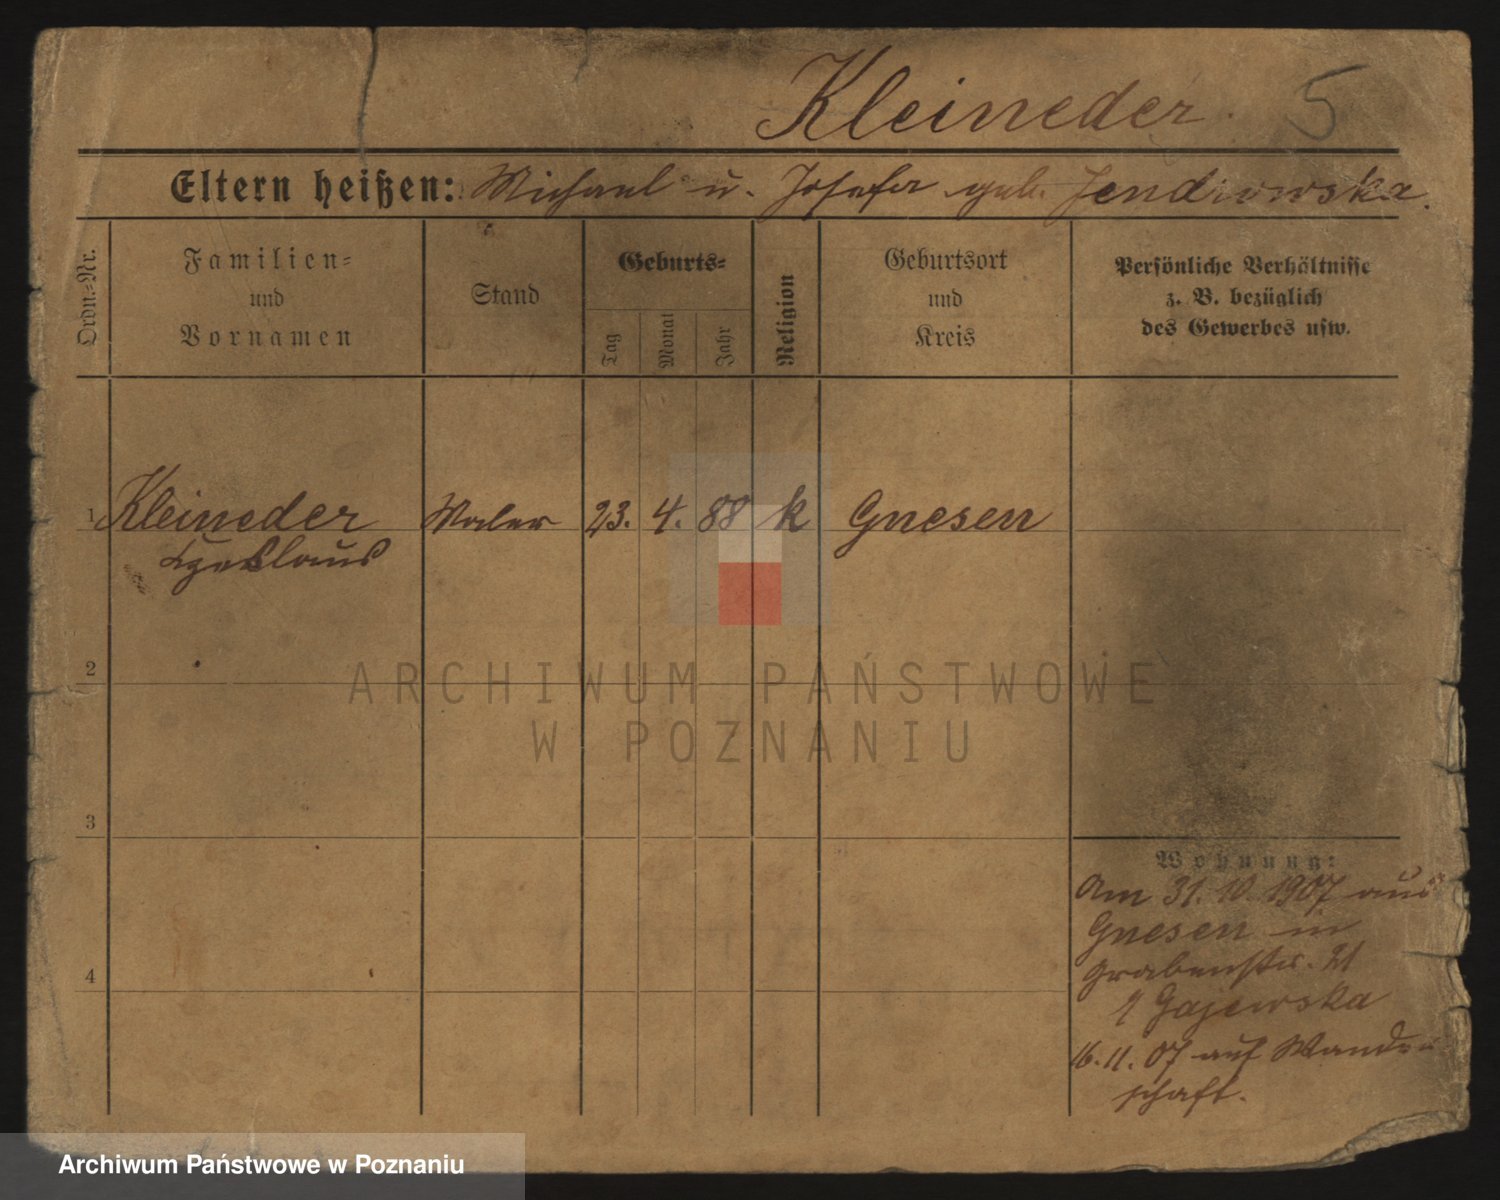 Kleineder. 5
Eltern heißen: Michael u. Josefa geb. Jendrowska.
Ordn.-Nr.
Familien-
und
Vornamen
Stand
Geburts-
Tag
Monat
Jahr
Religion
Geburtsort
und
Kreis
Persönliche Verhältnisse
z. B. bezüglich
des Gewerbes usw.
1 Kleineder Maler 23. 4. 88 k Gnesen
2
3
4
Wohnung:
Am 31. 10. 1907 aus
Gnesen in
Grabenstr. 21
Gajewska
16. 11. 07 auf Wander
schaft.
ARCHIWUM PAŃSTWOWE
W POZNANIU
Archiwum Państwowe w Poznaniu